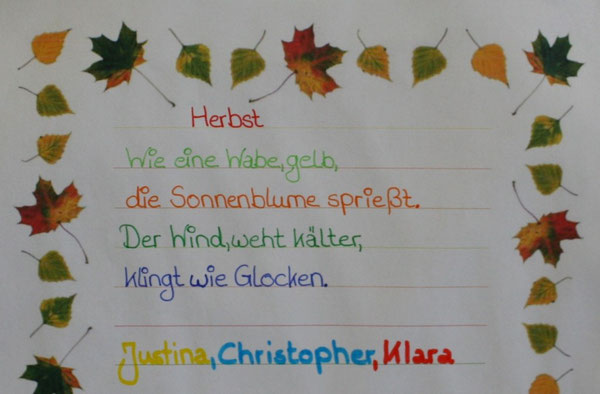 Herbst
Wie eine Wabe, gelb,
die Sonnenblume sprießt.
Der Wind, weht kälter,
klingt wie Glocken.
Justina, Christopher, Klara